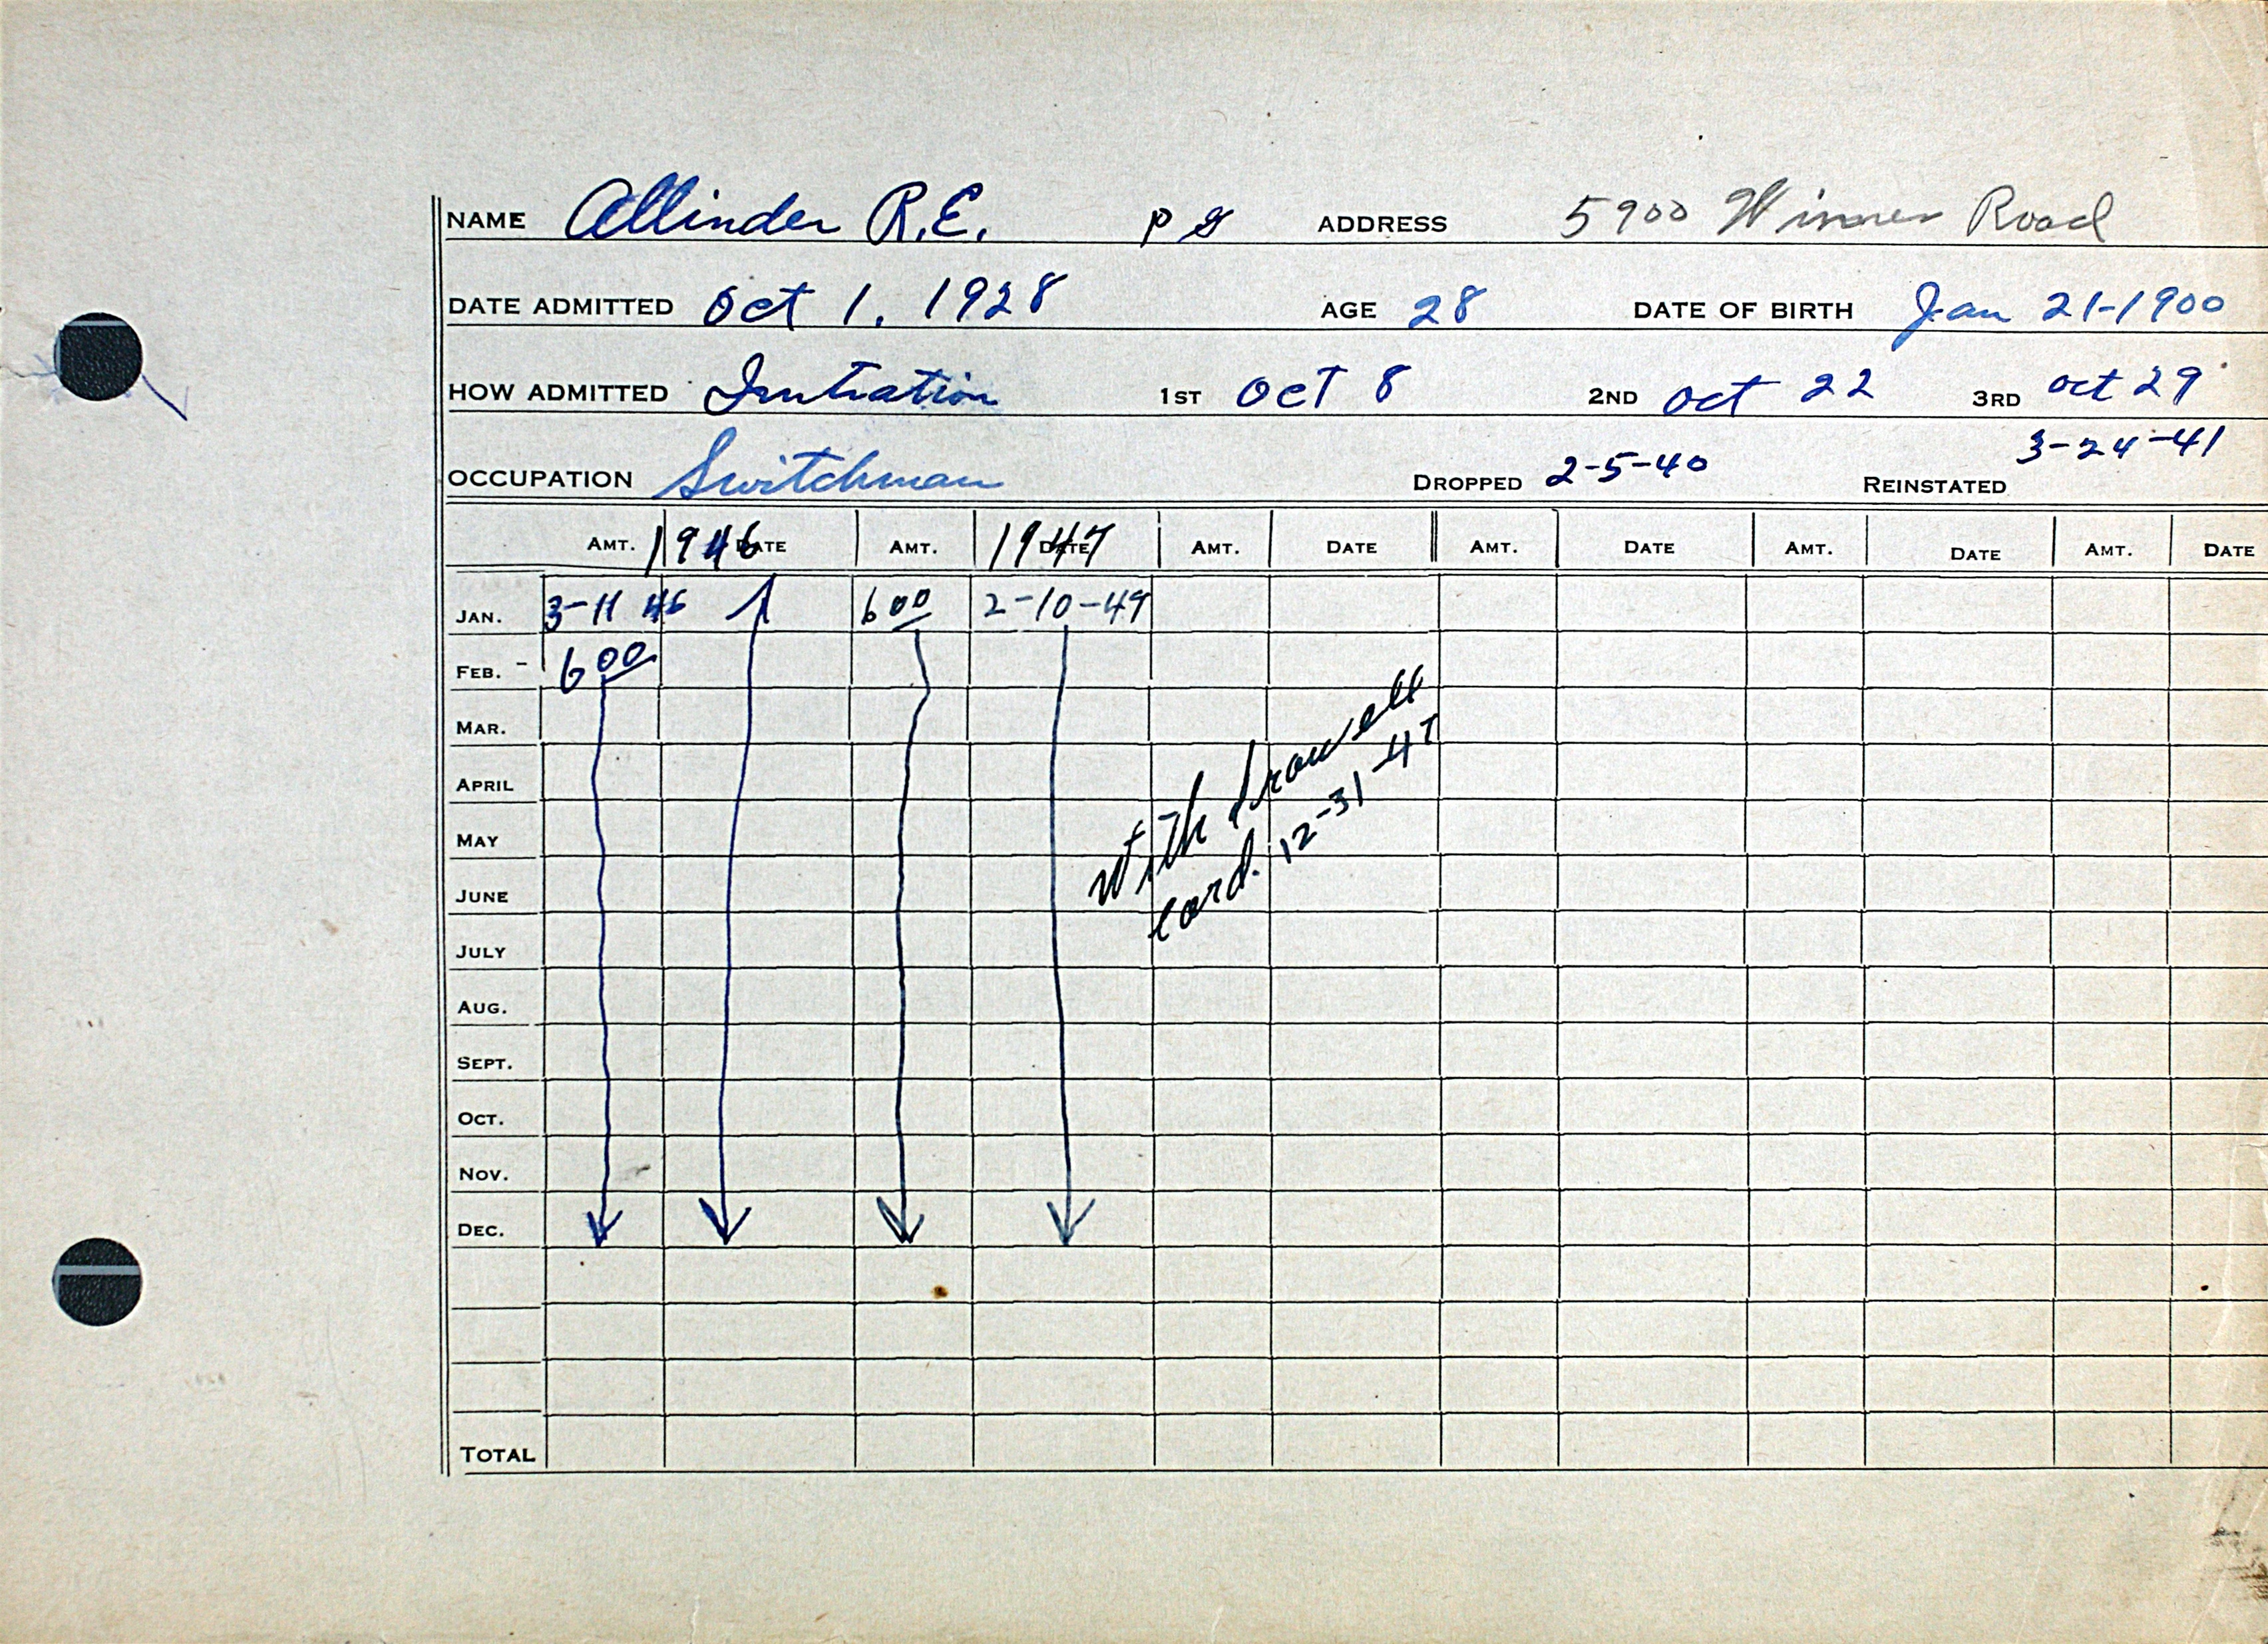 NAME Allinder R.E. P G ADDRESS 5900 Winner Road
DATE ADMITTED Oct 1, 1928 AGE 28 DATE OF BIRTH Jan 21-1900
HOW ADMITTED Intiation 1ST OCT 8 2ND Oct 22 3RD Oct 29
OCCUPATION Switchman DROPPED 2-5-40 REINSTATED 3-24-41
AMT. 1946 DATE AMT. 1947 DATE AMT. DATE AMT. DATE AMT. DATE AMT. DATE
JAN. 3-11 46 6 00 2-10-47
FEB. - 6 00
MAR.
APRIL
MAY
JUNE
JULY
AUG.
SEPT.
OCT.
NOV.
DEC.
TOTAL
with drowell
card. 12-31-47